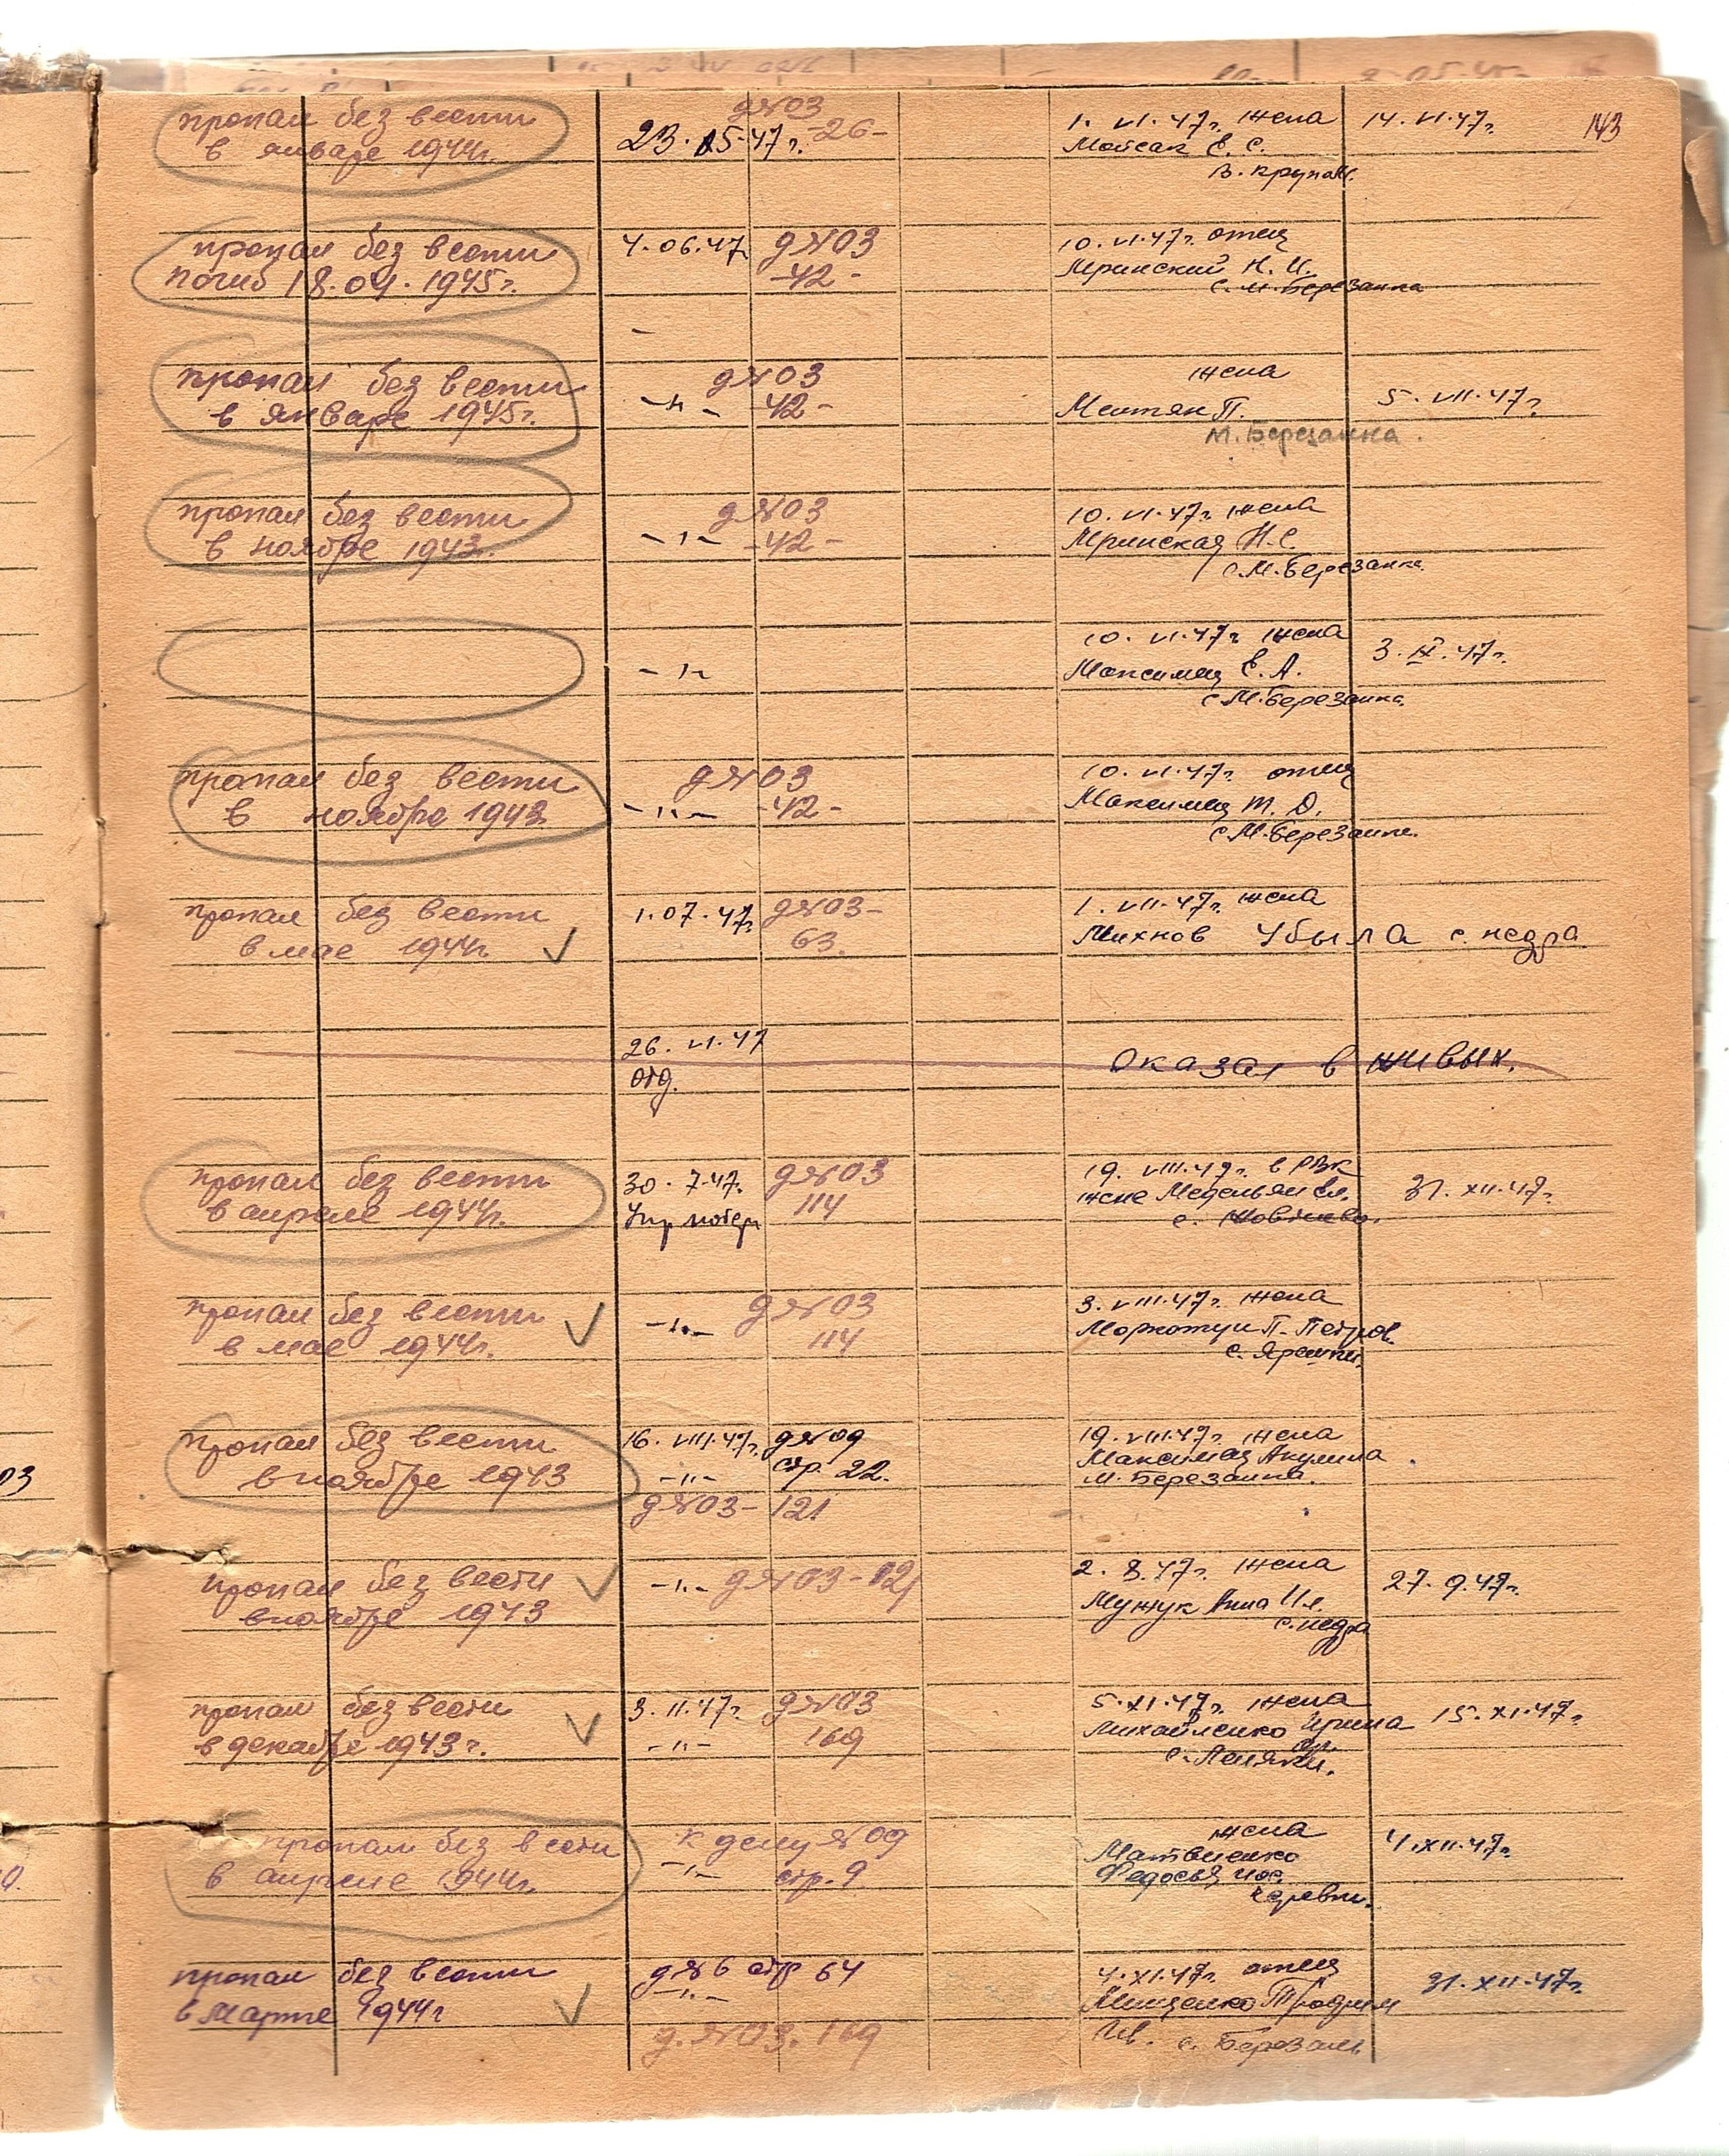 143
пропал без вести
в январе 1944г.
23.05.47г.
д№03
-26-
1. VI.47г. жена
Мойсак Е. С.
В. Крупол.
14. VI.47г.
пропал без вести
погиб 18.04.1945г.
4.06.47
д№03
-42-
10. VI.47г. отец
Мринский Н. И.
с. М. Березанка
пропал без вести
в январе 1945г.
-"-
д№03
-42-
жена
П.
М. Березанка.
5. VII.47г.
пропал без вести
в ноябре 1943.
-"-
д№03
-42-
10. VI.47г. жена
Мринская Н.С.
с.М.Березанка
-"-
10. VI.47г. жена
Максимец Е. А.
с М.Березанка.
3. IX.47г.
пропал без вести
в ноябре 1943
-"-
д№03
-42-
10. VI.47г. отец
Максимец Т. Д.
с М.Березанке.
пропал без вести
в мае 1944г.
1.07.47г.
д№03-
63.
1. VII.47г. жена
Михнов Убыла с. недра
26. VI.47
отд.
Оказал в живых.
пропал без вести
в апреле 1944г.
30.7.47.
Упр потерь
д№03
114
19. VIII.47г. в РВК
жене
с.
31. XII.47г.
пропал без вести
в мае 1944г.
-"-
д№03
114
3. VIII.47г. жена
П. Петров.
с. Ярешки.
пропал без вести
в ноябре 1943
16. VIII.47г.
-"-
д№09
стр. 22.
д№03- 121
19. VIII.47г. жена
Максимец Акулина
М. Березанка.
пропал без вести
в ноябре 1943
-"- д№03-121
2. 8.47г. жена
Мужук Анна Ил.
с.недра
27.9.47г.
пропал без вести
в декабре 1943г.
3.11.47г.
-"-
д№03
169
5.XI.47г. жена
Михайленко Ирина
с. Леляки.
15.XI.47г.
пропал без вести
в апреле 1944г.
к делу №09
-"- стр.9
жена
Матвиенко
Федосья
4.XII.47г.
пропал без вести
в марте 1944г
д№6 стр 64
-"-
д.№03.169
4.XI.47г. отец
Мищенко Трофим
Ив. с. Березань
31.XII.47г.